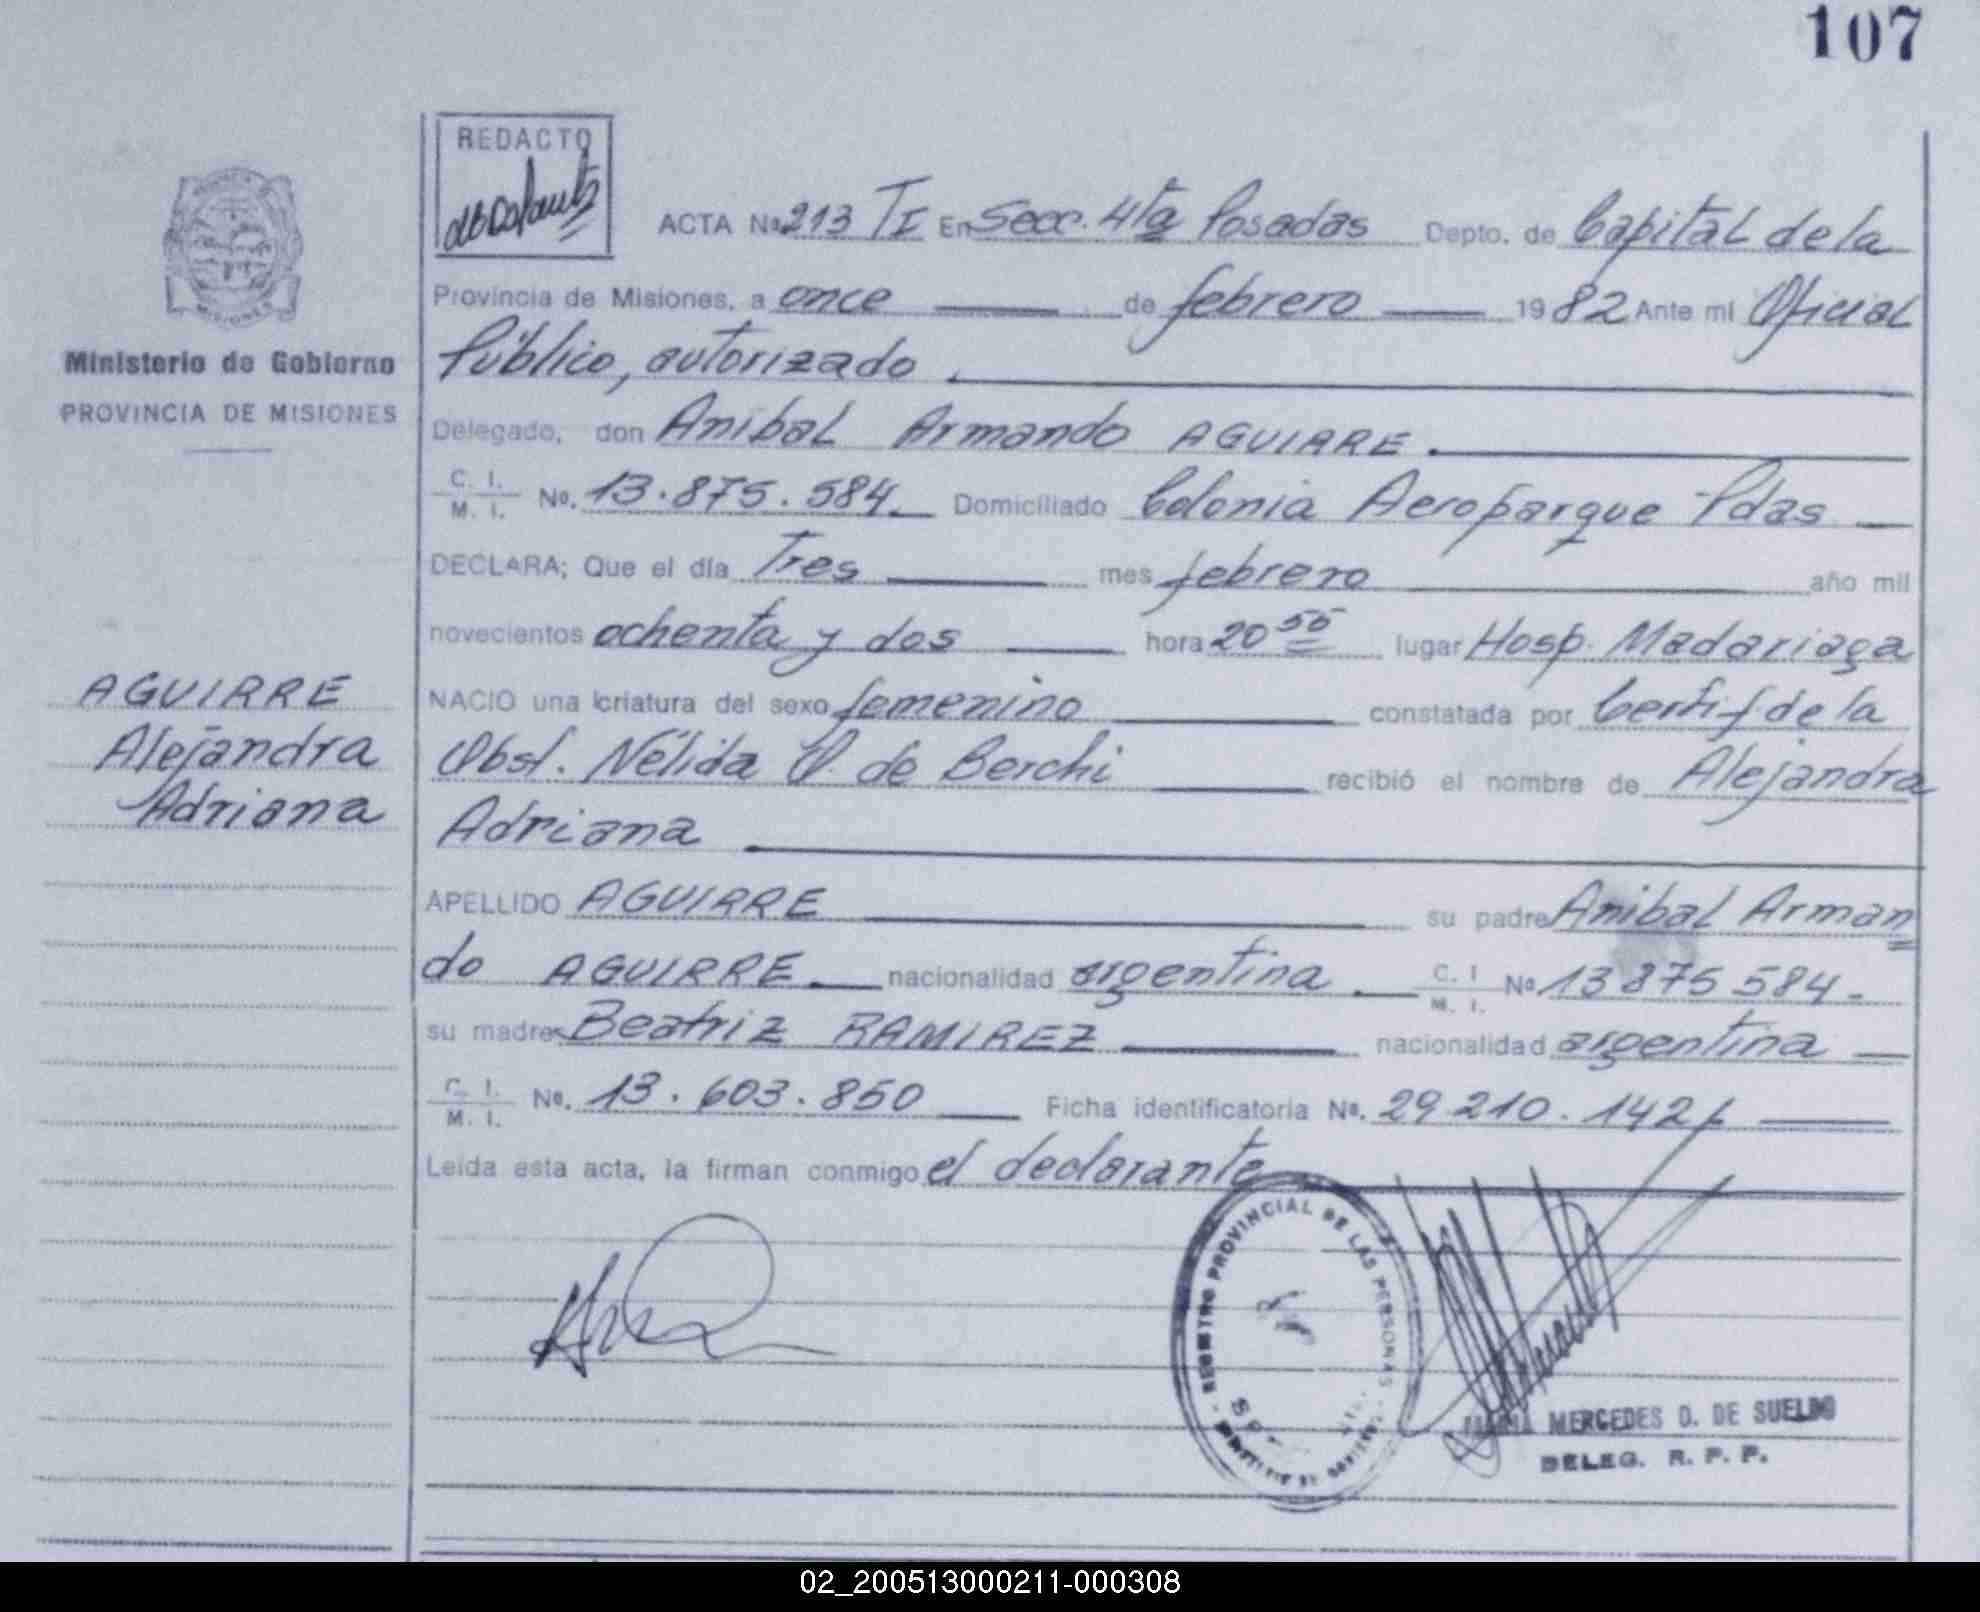 107
REDACTO
ACTA Nº 213 TI En Secc. 4ta Posadas Depto. de Capital de la
Provincia de Misiones, a once de febrero 1982 Ante mi Oficial
Público, autorizado
Ministerio de Gobierno
PROVINCIA DE MISIONES
Delegado, don Anibal Armando AGUIRRE.
C. I. M. I. Nº. 13.875.584. Domiciliado Colonia Aeroparque - Pdas
DECLARA; Que el día Tres mes febrero año mil
novecientos ochenta y dos hora 20 55 lugar Hosp. Madariaga
AGUIRRE
Alejandra
Adriana
NACIO una criatura del sexo femenino constatada por Certif de la
Obst. Nélida V. de Berchi recibió el nombre de Alejandra
Adriana
APELLIDO AGUIRRE su padre Anibal Arman
do AGUIRRE nacionalidad argentina C. I. M. I. Nº 13 875 584-
su madre Beatriz RAMIREZ nacionalidad argentina
C. I. M. I. Nº. 13.603.850 Ficha identificatoria Nº. 29.210.142
Leída esta acta, la firman conmigo el declarante
REGISTRO PROVINCIAL DE LAS PERSONAS
MARIA MERCEDES D. DE SUELDO
DELEG. R. P. P.
02_200513000211-000308